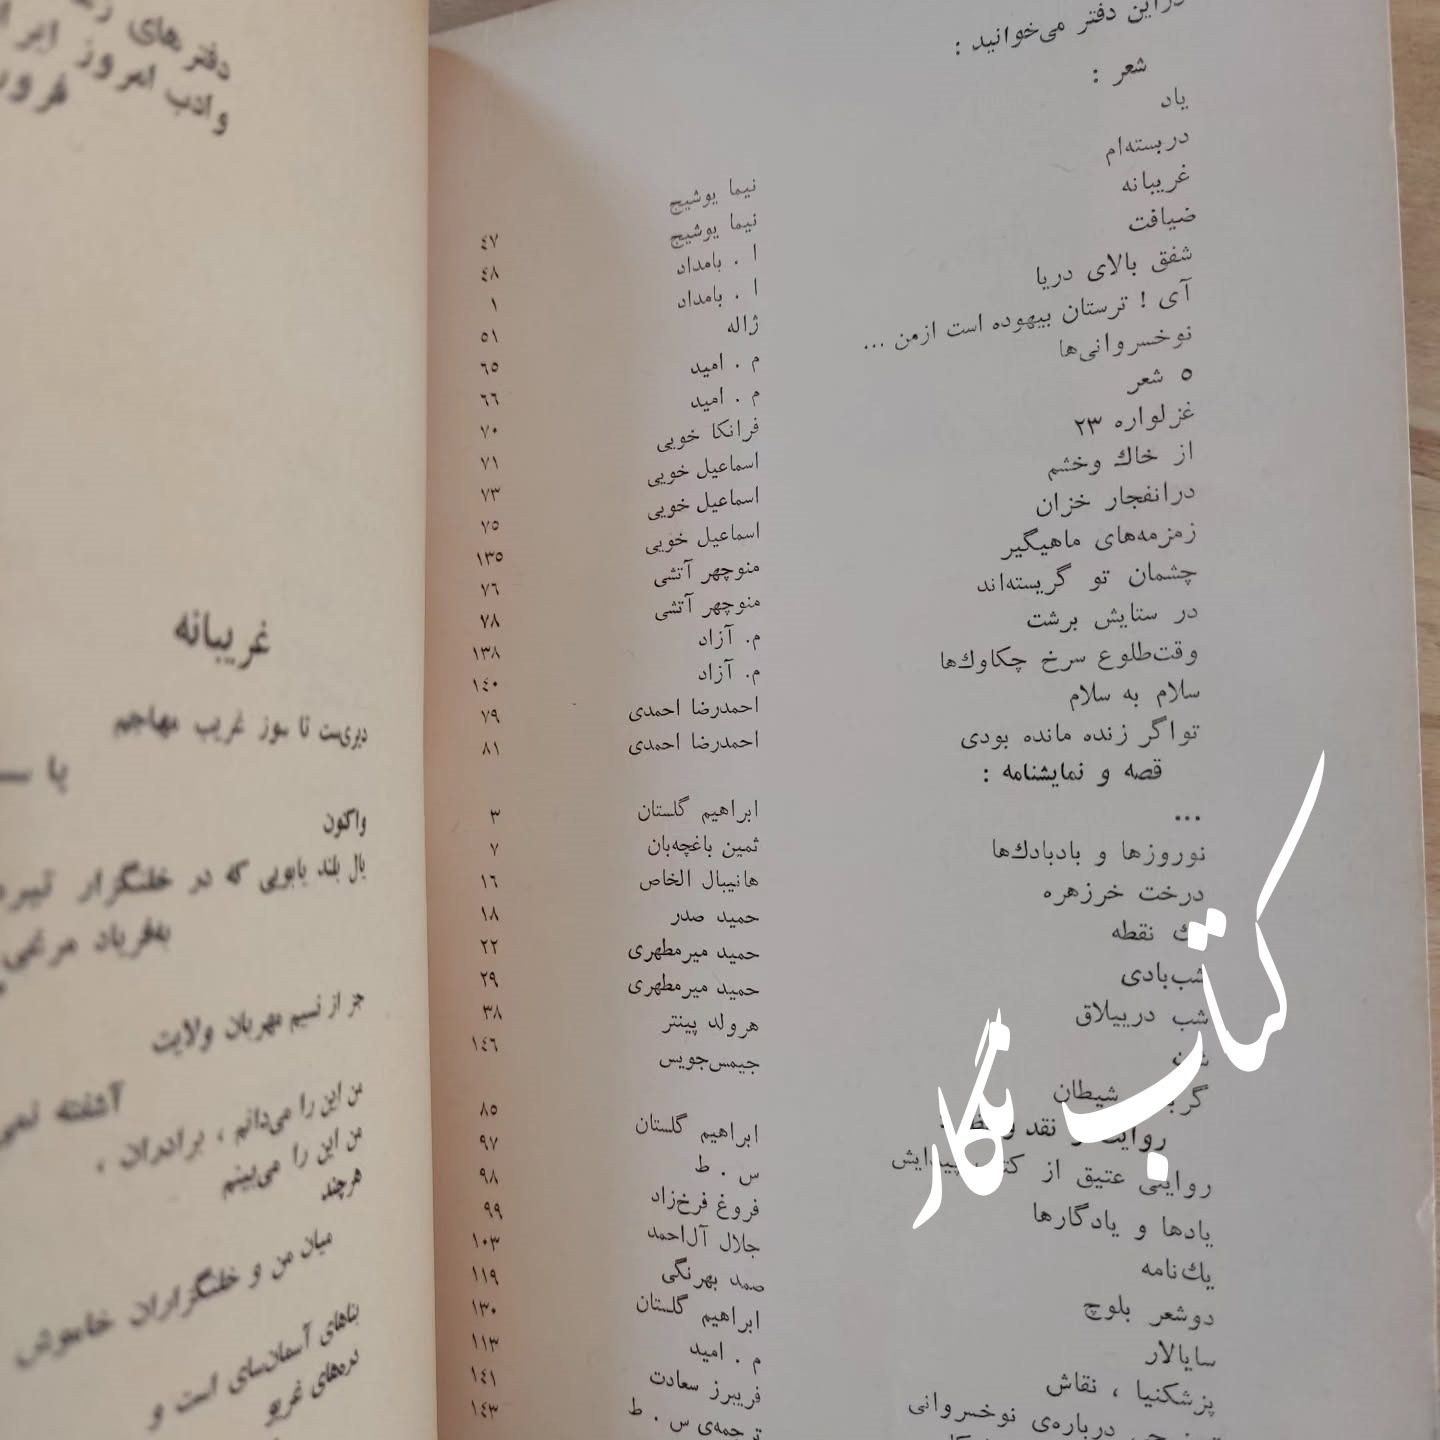 دراین دفتر می‌خوانید :
شعر :
یاد نیما یوشیج ۴۷
دربسته‌ام نیما یوشیج ۴۸
غریبانه ا . بامداد ۱
ضیافت ا . بامداد ۵۱
شفق بالای دریا ژاله ۶۵
آی ! ترستان بیهوده است ازمن ... م . امید ۶۶
نوخسروانی‌ها م . امید ۷۰
۵ شعر فرانکا خویی ۷۱
غزلواره ۲۳ اسماعیل خویی ۷۳
از خاك وخشم اسماعیل خویی ۷۵
درانفجار خزان اسماعیل خویی ۱۳۵
زمزمه‌های ماهیگیر منوچهر آتشی ۷۶
چشمان تو گریسته‌اند منوچهر آتشی ۷۸
در ستایش برشت م. آزاد ۱۳۸
وقت‌طلوع سرخ چکاوك‌ها م. آزاد ۱۴۰
سلام به سلام احمدرضا احمدی ۷۹
تواگر زنده مانده بودی احمدرضا احمدی ۸۱
قصه و نمایشنامه :
... ابراهیم گلستان ۳
نوروزها و بادبادك‌ها ثمین باغچه‌بان ۷
درخت خرزهره هانیبال الخاص ۱۶
نقطه حمید صدر ۱۸
شب‌بادی حمید میرمطهری ۲۲
شب درییلاق حمید میرمطهری ۲۹
هرولد پینتر ۳۸
شیطان جیمس‌جویس ۱۴۶
روایت و نقد و
روایتی عتیق از کتاب پیدایش ابراهیم گلستان ۸۵
یادها و یادگارها س . ط ۹۷
یك‌نامه فروغ فرخ‌زاد ۹۸
دوشعر بلوچ جلال آل‌احمد ۹۹
سایالار صمد بهرنگی ۱۰۳
پزشکنیا ، نقاش ابراهیم گلستان ۱۱۹
درباره‌ی نوخسروانی م . امید ۱۳۰
فریبرز سعادت ۱۱۳
ترجمه‌ی س . ط ۱۴۱
۱۴۳
کتاب نگار
دفترهای
وادب امروز ایرا
غریبانه
دیری‌ست تا سوز غریب مهاجم
پا
واگون
یال بلند یابویی که در خلنگزار تیره
به‌فریاد مرغی
جز از نسیم مهربان ولایت
آشفته نمی
من این را می‌دانم ، برادران ،
من این را می‌بینم
هرچند
میان من و خلنگزاران خاموش
بناهای آسمان‌سای است و
دره‌های غریو